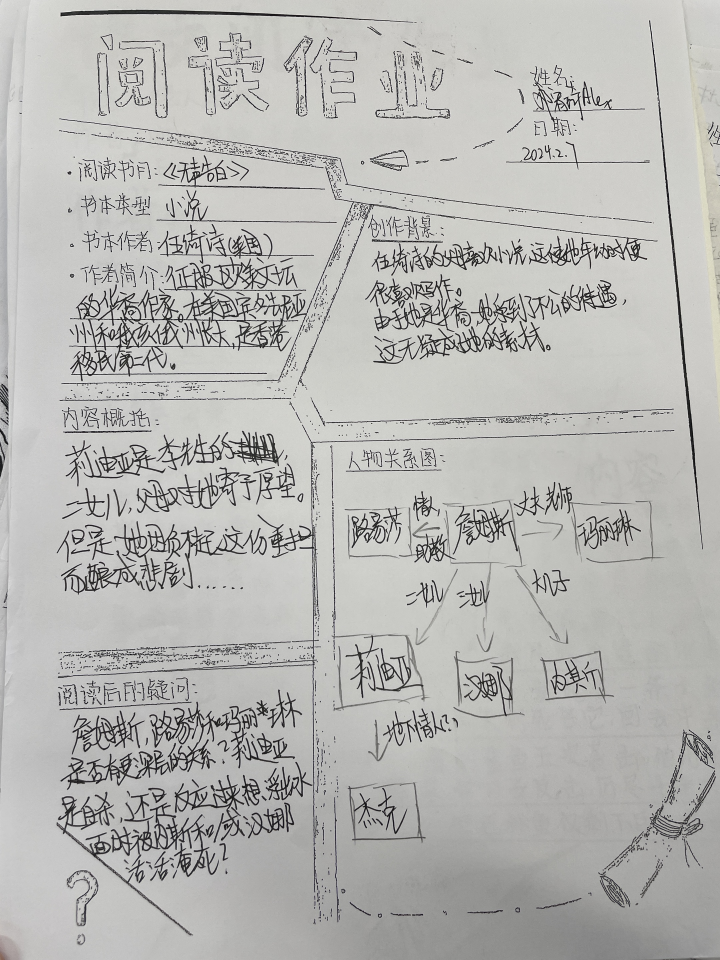 阅读作业
姓名:
Alex
日期:
2024.2.7
·阅读书目:《无声告白》
·书本类型 小说
·书本作者:伍绮诗(美国)
·作者简介:征服欧美文坛
的华裔作家。在美国宾夕法尼亚
州和俄亥俄州长大,是香港
移民第二代。
创作背景:
伍绮诗的父母喜欢小说,这使她年幼时便
很喜欢写作。
由于她是华裔,她受到了不公的待遇,
这无疑成她的素材。
内容概括:
莉迪亚是李先生的
二女儿,父母对她寄予厚望。
但是,她因负担不起这份重担
而酿成悲剧......
人物关系图:
路易莎
情人
助教
詹姆斯
丈夫 老师
玛丽琳
二女儿 三女儿 大儿子
莉迪亚 汉娜 内斯
地下情人(?)
杰克
阅读后的疑问:
詹姆斯,路易莎和玛丽琳
是否有更深层的关系?莉迪亚
是自杀,还是反应过来想浮出水
面时被内斯和或汉娜
活活淹死?
?